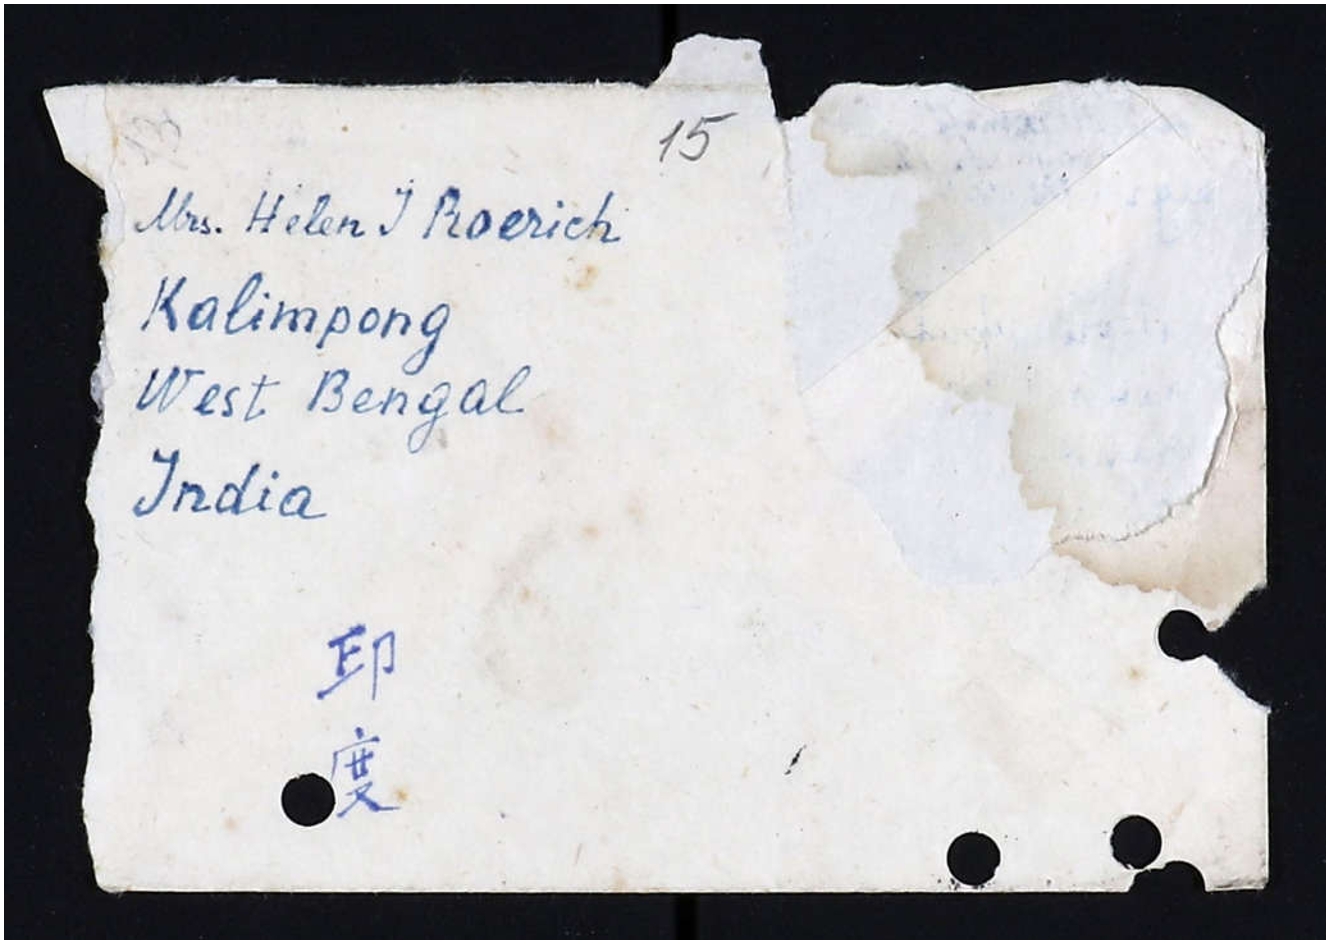 15
Mrs. Helen I Roerich
Kalimpong
West Bengal
India
印
度